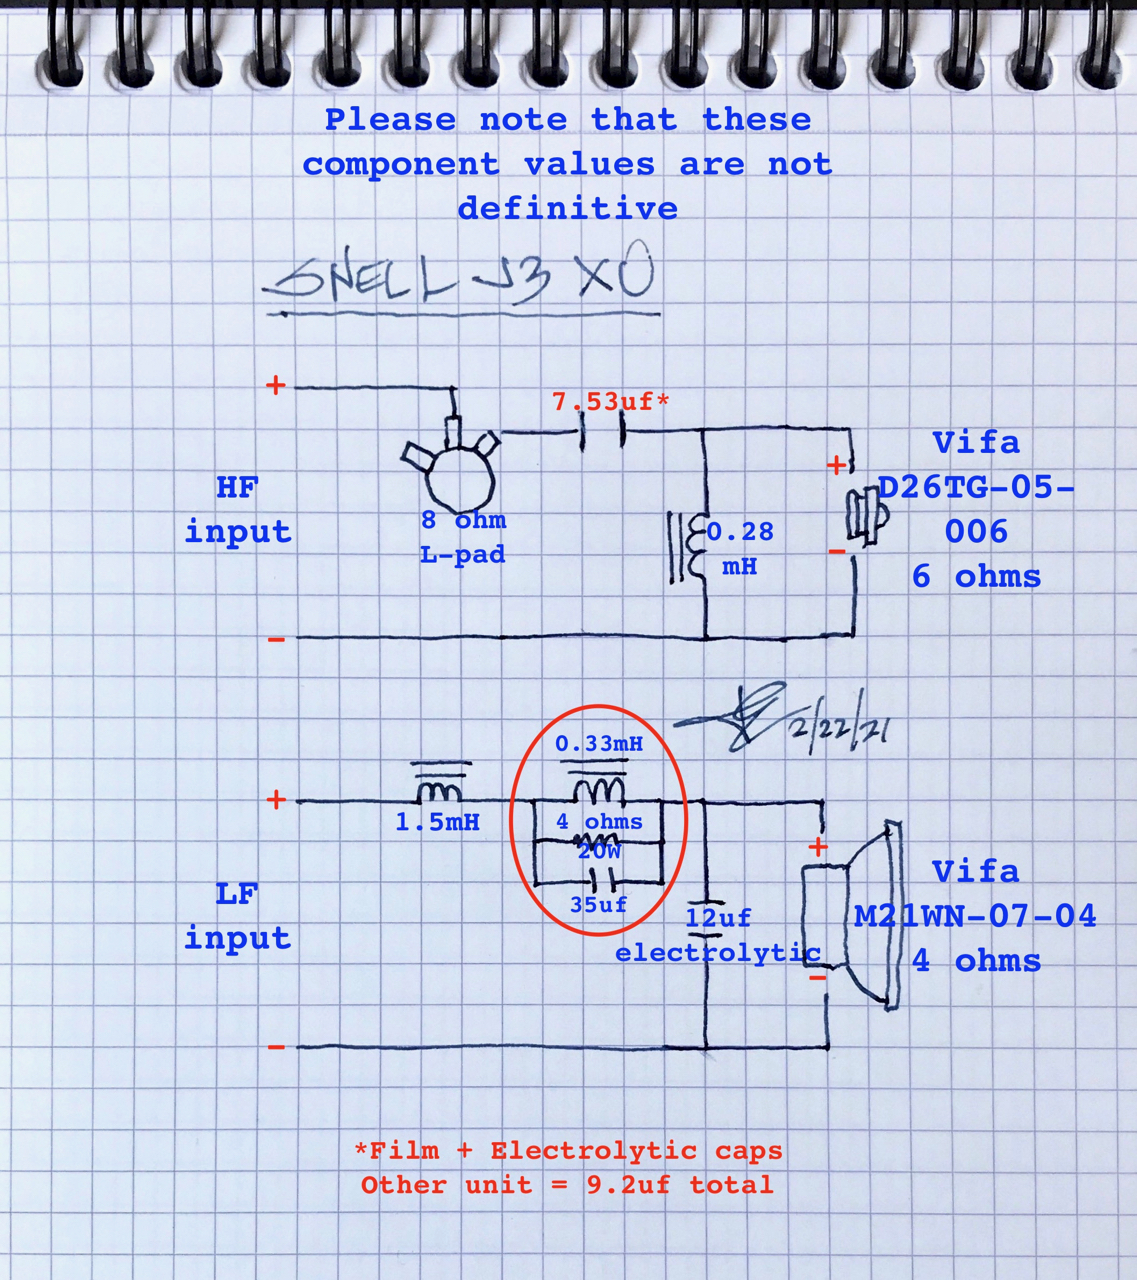 Please note that these
component values are not
definitive
SNELL J3 XO
+
7.53uf*
HF
input
8 ohm
L-pad
0.28
mH
+
-
Vifa
D26TG-05-
006
6 ohms
-
2/22/21
0.33mH
+
1.5mH
4 ohms
20W
35uf
LF
input
12uf
electrolytic
+
-
Vifa
M21WN-07-04
4 ohms
-
*Film + Electrolytic caps
Other unit = 9.2uf total